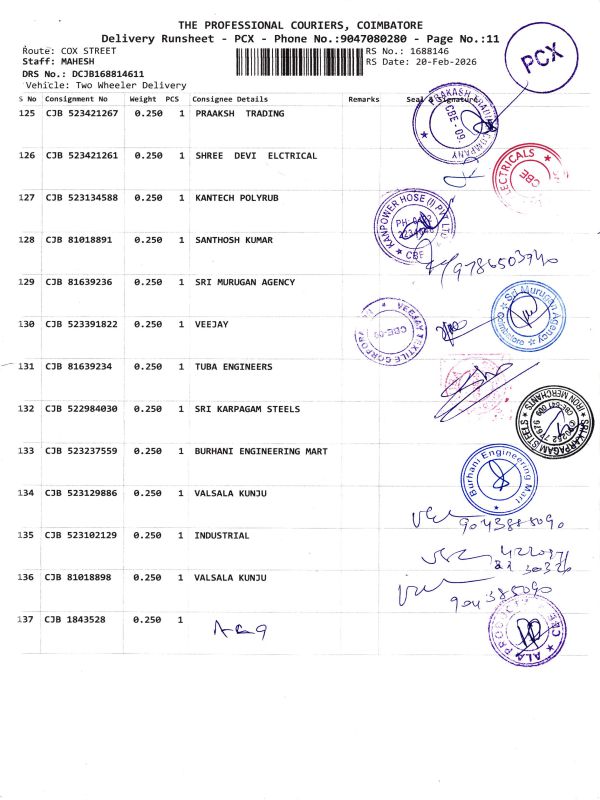 THE PROFESSIONAL COURIERS, COIMBATORE
Delivery Runsheet - PCX - Phone No.:9047080280 - Page No.:11
Route: COX STREET
RS No.: 1688146
Staff: MAHESH
RS Date: 20-Feb-2026
DRS No.: DCJB168814611
Vehicle: Two Wheeler Delivery
PCX
S No Consignment No Weight PCS Consignee Details Remarks Seal & Signature
125 CJB 523421267 0.250 1 PRAAKSH TRADING
PRAKASH TRADING COMPANY CBE-09
126 CJB 523421261 0.250 1 SHREE DEVI ELCTRICAL
ECTRICALS CBE
127 CJB 523134588 0.250 1 KANTECH POLYRUB
KANPOWER HOSE (I) PVT LTD CBE
128 CJB 81018891 0.250 1 SANTHOSH KUMAR
9786503740
129 CJB 81639236 0.250 1 SRI MURUGAN AGENCY
Sri Murugan Agency Coimbatore
130 CJB 523391822 0.250 1 VEEJAY
VEEJAY TEXTILE CORPORA CBE-09
131 CJB 81639234 0.250 1 TUBA ENGINEERS
132 CJB 522984030 0.250 1 SRI KARPAGAM STEELS
SRI KARPAGAM STEELS IRON MERCHANTS
133 CJB 523237559 0.250 1 BURHANI ENGINEERING MART
Burhani Engineering Mart
134 CJB 523129886 0.250 1 VALSALA KUNJU
135 CJB 523102129 0.250 1 INDUSTRIAL
136 CJB 81018898 0.250 1 VALSALA KUNJU
137 CJB 1843528 0.250 1
ALA PRODUCTS CBE